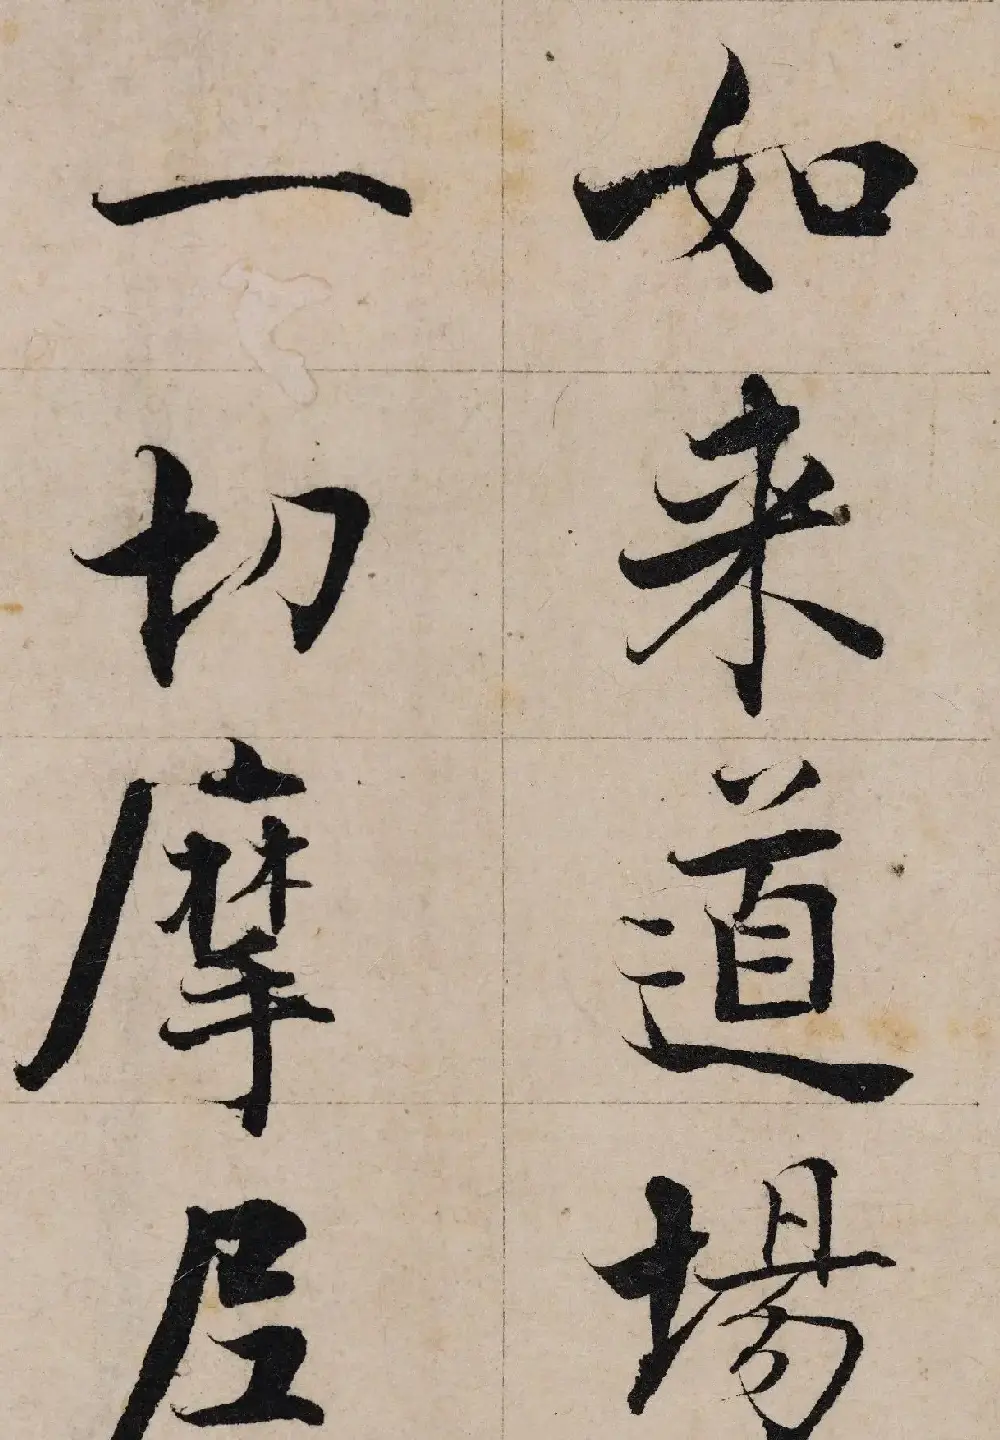 如来道場
一切摩尼